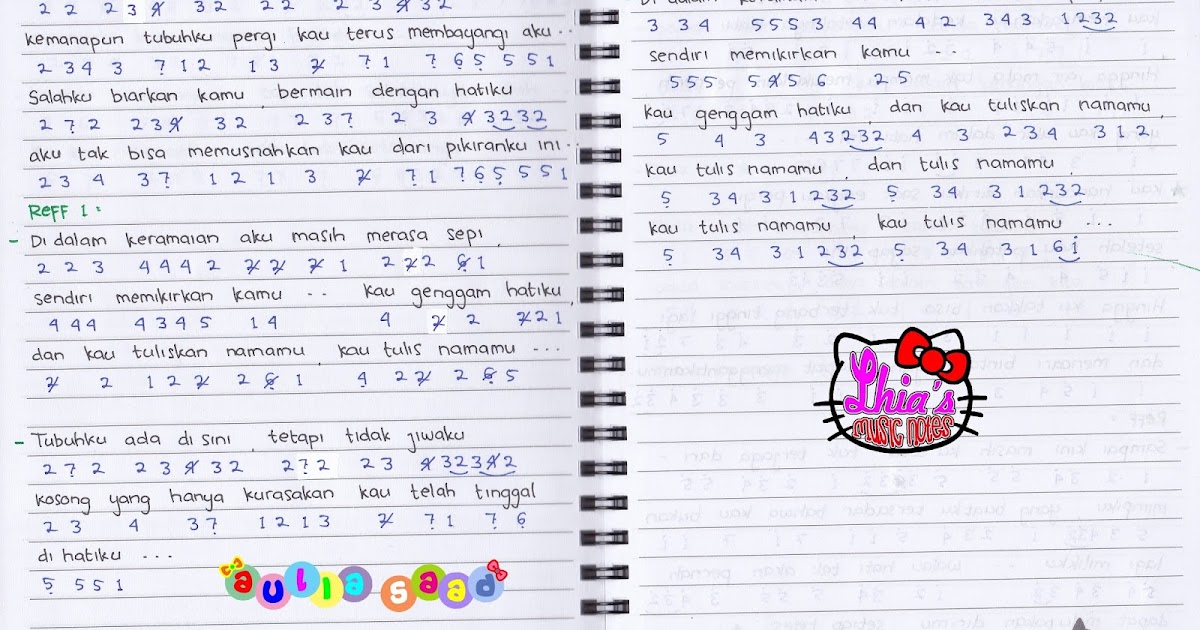 2 2 2 3 4 3 2 2 2 2 3 4 3 2
kemanapun tubuhku pergi kau terus membayangi aku..
2 3 4 3 7 1 2 1 3 2 7 1 7 6 5 5 5 1
Salahku biarkan kamu bermain dengan hatiku
2 7 2 2 3 4 3 2 2 3 7 2 3 4 3 2 3 2
aku tak bisa memusnahkan kau dari pikiranku ini..
2 3 4 3 7 1 2 1 3 2 7 1 7 6 5 5 5 1
Reff 1 :
- Di dalam keramaian aku masih merasa sepi,
2 2 3 4 4 4 2 2 2 2 1 2 2 2 6 1
sendiri memikirkan kamu .. kau genggam hatiku,
4 4 4 4 3 4 5 1 4 4 2 2 2 2 1
dan kau tuliskan namamu, kau tulis namamu ...
2 2 1 2 2 2 6 1 4 2 2 2 6 5
- Tubuhku ada di sini, tetapi tidak jiwaku
2 7 2 2 3 4 3 2 2 7 2 2 3 4 3 2 3 4 2
kosong yang hanya kurasakan kau telah tinggal
2 3 4 3 7 1 2 1 3 2 7 1 7 6
di hatiku ...
5 5 5 1
aulia saad
3 3 4 5 5 5 3 4 4 4 2 3 4 3 1 2 3 2
sendiri memikirkan kamu ...
5 5 5 5 4 5 6 2 5
kau genggam hatiku, dan kau tuliskan namamu,
5 4 3 4 3 2 3 2 4 3 2 3 4 3 1 2
kau tulis namamu, dan tulis namamu,
5 3 4 3 1 2 3 2 5 3 4 3 1 2 3 2
kau tulis namamu kau tulis namamu ...
5 3 4 3 1 2 3 2 5 3 4 3 1 6 1
Lhia's
music notes